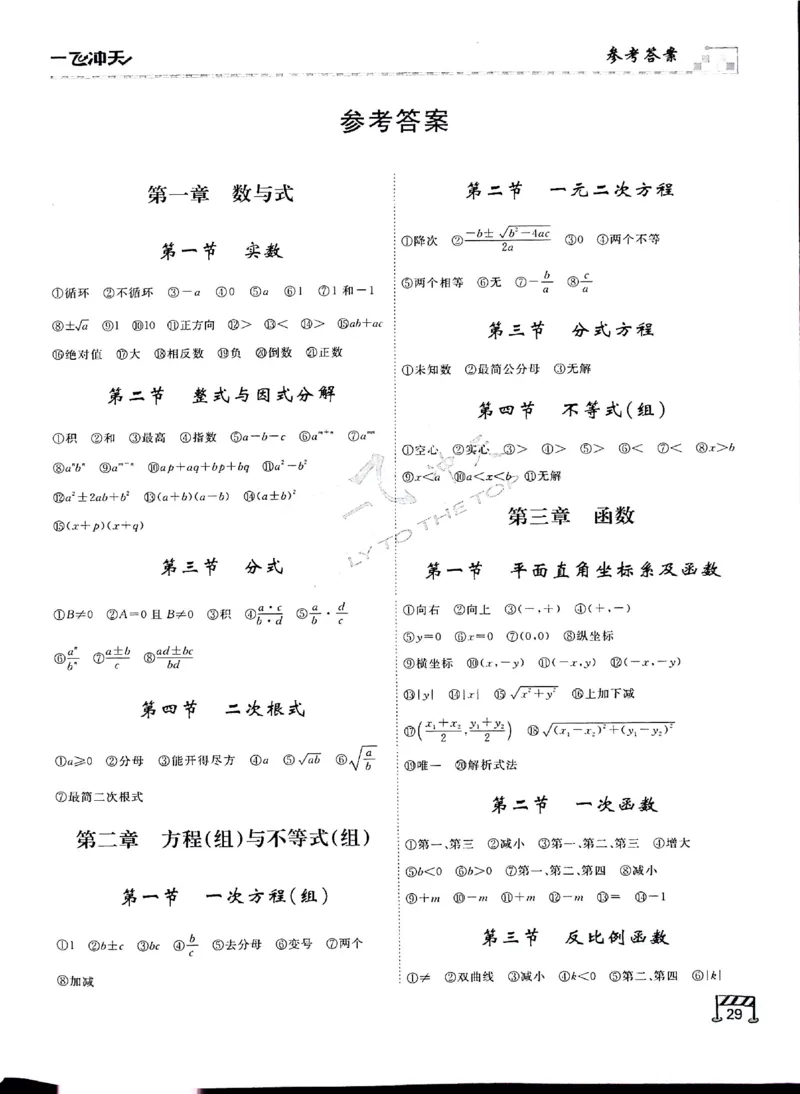 一飞冲天
参考答案
参考答案
第一章 数与式
第一节 实数
①循环 ②不循环 ③-a ④0 ⑤a ⑥1 ⑦1和-1
⑧±√a ⑨1 ⑩10 ⑪正方向 ⑫> ⑬< ⑭> ⑮ab+ac
⑯绝对值 ⑰大 ⑱相反数 ⑲负 ⑳倒数 ㉑正数
第二节 整式与因式分解
①积 ②和 ③最高 ④指数 ⑤a-b-c ⑥aᵐ⁺ⁿ ⑦aᵐⁿ
⑧aⁿbⁿ ⑨aᵐ⁻ⁿ ⑩ap+aq+bp+bq ⑪a²-b²
⑫a²±2ab+b² ⑬(a+b)(a-b) ⑭(a±b)²
⑮(x+p)(x+q)
第三节 分式
①B≠0 ②A=0且B≠0 ③积 ④a·c/b·d ⑤a/b·d/c
⑥aⁿ/bⁿ ⑦a±b/c ⑧ad±bc/bd
第四节 二次根式
①a≥0 ②分母 ③能开得尽方 ④a ⑤√ab ⑥√(a/b)
⑦最简二次根式
第二章 方程(组)与不等式(组)
第一节 一次方程(组)
①1 ②b±c ③bc ④b/c ⑤去分母 ⑥变号 ⑦两个
⑧加减
第二节 一元二次方程
①降次 ②(-b±√(b²-4ac))/2a ③0 ④两个不等
⑤两个相等 ⑥无 ⑦-b/a ⑧c/a
第三节 分式方程
①未知数 ②最简公分母 ③无解
第四节 不等式(组)
①空心 ②实心 ③> ④> ⑤> ⑥< ⑦< ⑧x>b
⑨x<a ⑩a<x<b ⑪无解
一飞冲天
LY TO THE TOP
第三章 函数
第一节 平面直角坐标系及函数
①向右 ②向上 ③(-,+) ④(+,-)
⑤y=0 ⑥x=0 ⑦(0,0) ⑧纵坐标
⑨横坐标 ⑩(x,-y) ⑪(-x,y) ⑫(-x,-y)
⑬|y| ⑭|x| ⑮√(x²+y²) ⑯上加下减
⑰((x₁+x₂)/2,(y₁+y₂)/2) ⑱√((x₁-x₂)²+(y₁-y₂)²)
⑲唯一 ⑳解析式法
第二节 一次函数
①第一、第三 ②减小 ③第一、第二、第三 ④增大
⑤b<0 ⑥b>0 ⑦第一、第二、第四 ⑧减小
⑨+m ⑩-m ⑪+m ⑫-m ⑬= ⑭-1
第三节 反比例函数
①≠ ②双曲线 ③减小 ④k<0 ⑤第二、第四 ⑥|k|
29